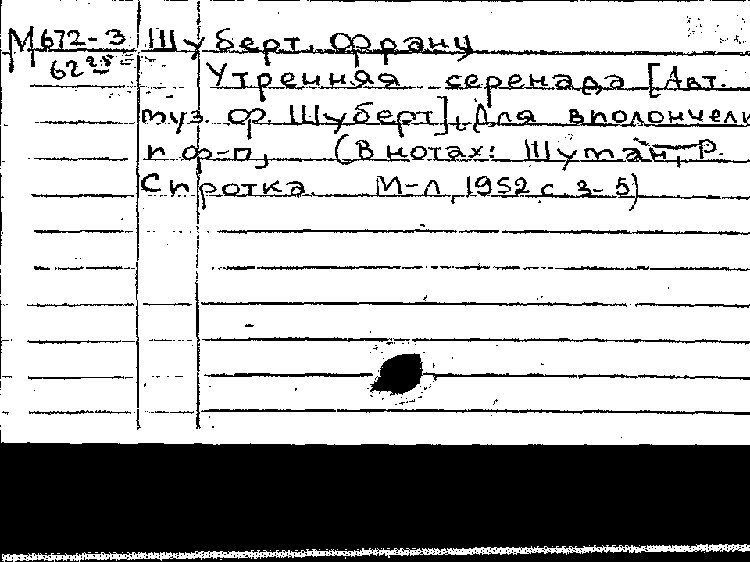 М672-3 Шуберт, Франц
62 25
Утренняя серенада [Авт.
муз. Ф. Шуберт], Для виолончели
и ф-п, (В нотах: Шуман, Р.
Сиротка. М-Л, 1952 с. 3-5)